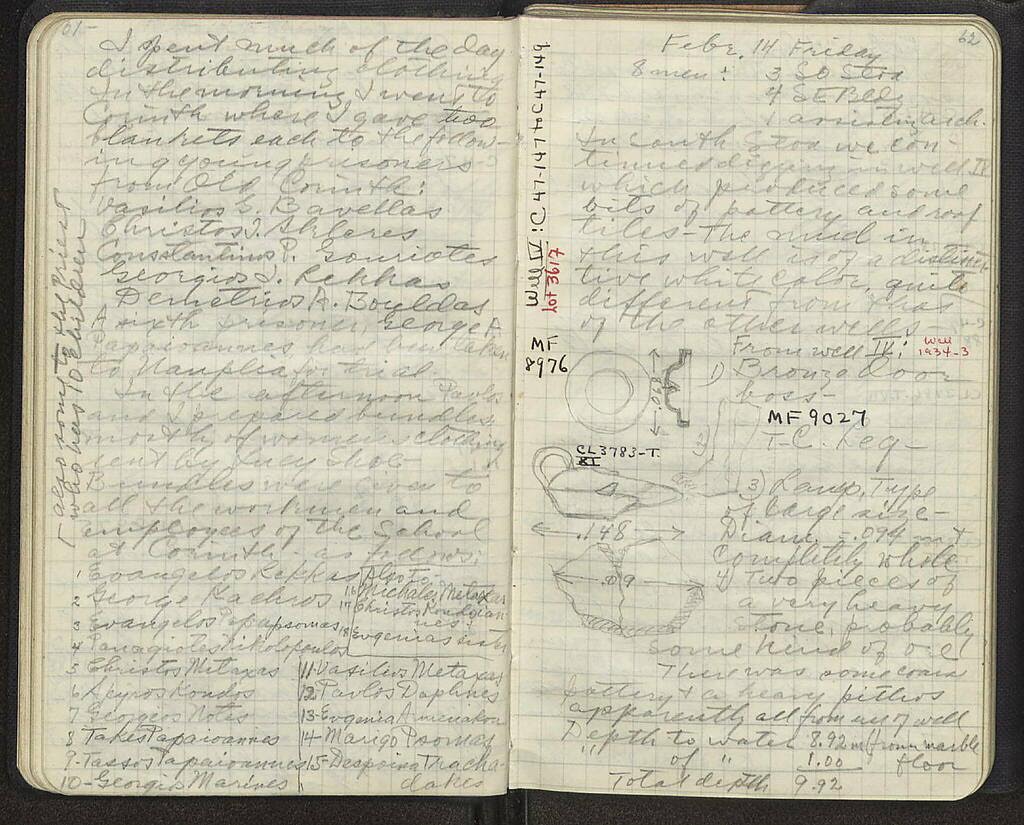 61
I spent much of the day
distributing clothing
In the morning I went to
Corinth where I gave two
blankets each to the follow-
ing young prisoners
from Old Corinth:
Vasilios G. Bavellas
Christos J.
Constantinos P. Gouriotes
Georgios J. Rekkas
Demetrios A. Bouldas
A sixth prisoner, George A.
Papaioannes had been taken
to Nauplia for trial.
In the afternoon Pavlos
and I prepared bundles
mostly of women's clothing
sent by Lucy
Bundles were given to
all the workmen and
employees of the School
at Corinth - as follows:
1 Evangelos Rekkas
2 George Kachros
3 Evangelos Papapsomas
4 Panagiotes Nikolopoulos
5 Christos Metaxas
6 Spyros Kondos
7 Georgios Notes
8 Takes Papaioannes
9- Tassos Papaioannes
10- Georgios Marines
Also To
16 Michales Metaxas
17 Christos
18 Evgenias sister
11- Vasilios Metaxas
12 Pavlos Daphnes
13- Evgenia
14- Marigo Psomas
15- Despoina Tracha-
dakes
also some to the priest
who has 10 children
62
Febr. 14 Friday
8 men: 3 SO Stoa
4 SE Bldg
1 assisting arch.
In South Stoa we con-
tinued digging in well IV
which produced some
bits of pottery and roof
tiles - the mud in
this well is of a distinc-
tive white color, quite
different from that
of the other wells -
From well IV:
Well
1934-3
1) Bronze door
boss -
MF 9027
2)
T-C. Leg -
3) Lamp, Type
of large size -
Diam. - .094 m +
Completely whole
4) Two pieces of
a very heavy
stone, probably
some kind of oil
There was some coarse
pottery & a heavy pithos
apparently all from use of well
Depth to water 8.92 m (from marble
floor
" of " 1.00
Total depth 9.92
Well IV: C 47-147 to C 47-149
Lot 3617
MF
8976
.90
CL 3783-T.
XI
.148
.09